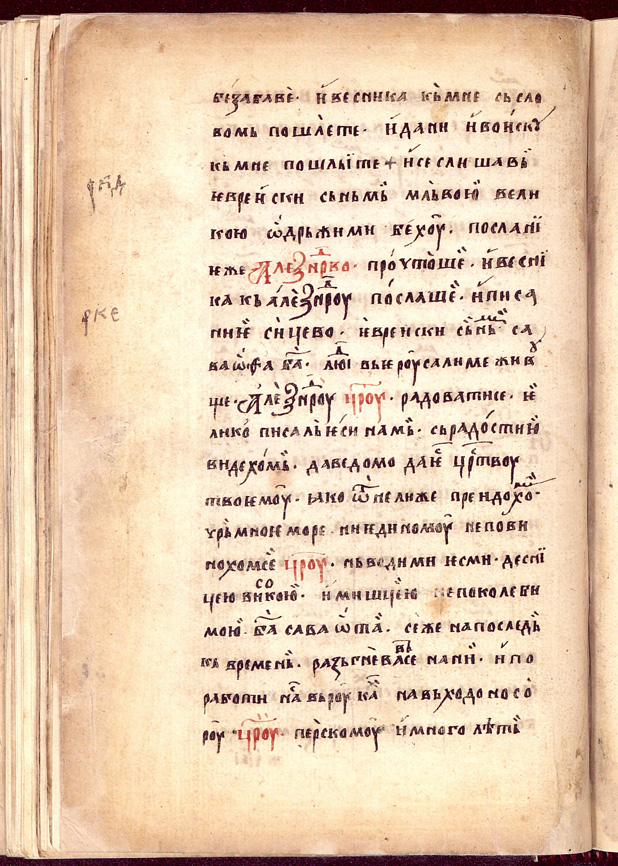 беꙁабавѐ· и҆ весника къ мне сьсло
вомь пошлѐте· и҆ дани и҆ воискꙋ
кь мне пошлїите + и҆ се слишавѣ
ѥврѐйски сьньмѣ мльвою вели
кою ѡ҆дрьжими бе́хоѵ· посланїѥ
ѥже Але́ꙁⷣндрво· прочтошѐ· и҆ веснї
ка кь а҆ле́ꙁⷣндроу посⷧашѐ· и҆ писа
ниѥ сицево· ѥврейски сьньⷨ са
ваѡѳа ба҃· люⷣїи вь ѥроу̑салиме живꙋ
ще· Але́ꙁⷣндроу цр҃оу· радоватисе· ѥ
лико̀ писаль ѥси намь· сь радо́стию
видехо́мь· да ведомо да ѥ҃ цр҃твоу
твоѥмоу̑· ꙗко ѿнелиже преидохоⷨ·
чрьмноѥ море· ни ѥдиномоу̑ непови
нохомсѐ цр҃оу· нь водими ѥсми· деснї
цею високою· и҆ мишцею непоколеби
мою· ба҃ саваѡѳа· се́же на последь
кь времень· раꙁьгневавьсе на ни· и҆ по
работи на҃ вь роу̑кⷶ навьходоносо̀
роу̑ цр҃оу· перьскомоу̑ и҆ много лѣть
рке